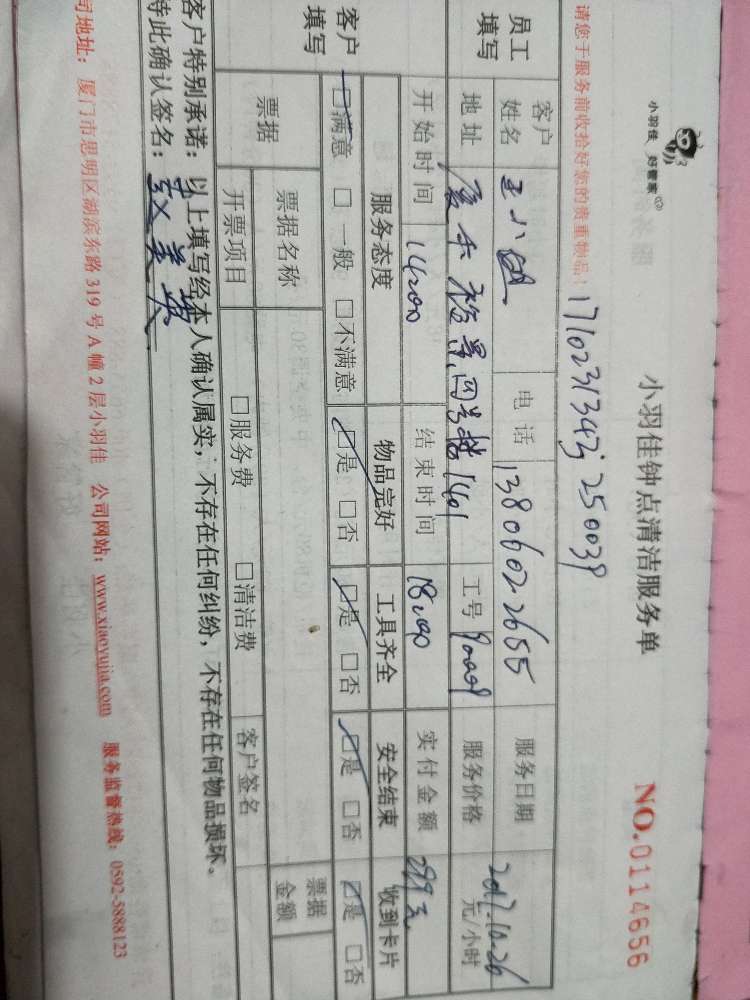 小羽佳 好管家
小羽佳钟点清洁服务单
NO.0114656
请您于服务前收拾好您的贵重物品!
1710231342 250039
员工填写
客户姓名 王小姐 电话 13806022655 服务日期 2017.10.26
地址 四号楼1401 工号 90009 服务价格 元/小时
开始时间 14:00 结束时间 18:00 实付金额 299元
客户填写
服务态度 物品完好 工具齐全 安全结束 收到卡片
☑满意 □一般 □不满意 ☑是 □否 ☑是 □否 ☑是 □否 ☑是 □否
票据 票据名称 票据金额
开票项目 □服务费 □清洁费 客户签名
客户特别承诺:以上填写经本人确认属实,不存在任何纠纷,不存在任何物品损坏。
特此确认签名:
司地址:厦门市思明区湖滨东路319号A幢2层小羽佳 公司网站:www.xiaoyujia.com 服务监督热线:0592-5888123